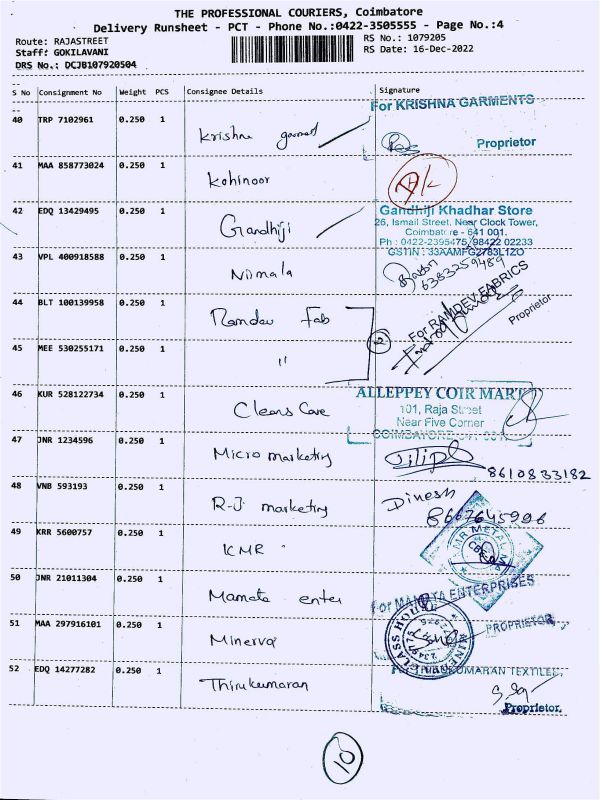 THE PROFESSIONAL COURIERS, Coimbatore
Delivery Runsheet - PCT - Phone No.:0422-3505555 - Page No.:4
Route: RAJASTREET
RS No.: 1079205
Staff: GOKILAVANI
RS Date: 16-Dec-2022
DRS No.: DCJB107920504
S No Consignment No Weight PCS Consignee Details Signature
For KRISHNA GARMENTS
40 TRP 7102961 0.250 1 Krishna garment
Proprietor
41 MAA 858773024 0.250 1 Kohinoor
42 EDQ 13429495 0.250 1 Gandhiji
Gandhiji Khadhar Store
26, Ismail Street, Near Clock Tower,
Coimbatore - 641 001.
Ph : 0422-2395475, 98422 02233
GSTIN : 33AAMFG2783L1ZO
43 VPL 400918588 0.250 1 Nirmala
6383259489
44 BLT 100139958 0.250 1 Ramdev Fab
For RAMDEV FABRICS
Proprietor
2
45 MEE 530255171 0.250 1 "
46 KUR 528122734 0.250 1 Cleans Care
ALLEPPEY COIR MART
101, Raja Street
Near Five Corner
COIMBATORE - 641 001
47 JNR 1234596 0.250 1 Micro marketing
8610833182
48 VNB 593193 0.250 1 R-J marketing
Dinesh
8667645996
49 KRR 5600757 0.250 1 KMR
MR METAL
50 JNR 21011304 0.250 1 Mamata enter
For MAMATA ENTERPRISES
PROPRIETOR
51 MAA 297916101 0.250 1 Minerva
GLASS HOUSE
52 EDQ 14277282 0.250 1 Thirukumaran
For THIRUKUMARAN TEXTILES,
Proprietor.
10